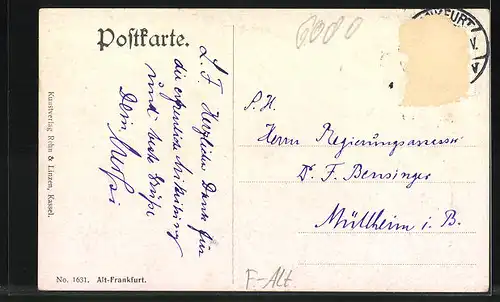 Postkarte.
6080
FURT
L. F. Herzlichen Dank für
die erfreuliche Mitteilung
und beste Grüße
Dein
S. H.
Herrn Regierungsassessor
Dr. F. Bensinger
Müllheim i. B.
Kunstverlag Rehn & Linzen, Kassel.
No. 1631. Alt-Frankfurt.
F.-Alt.